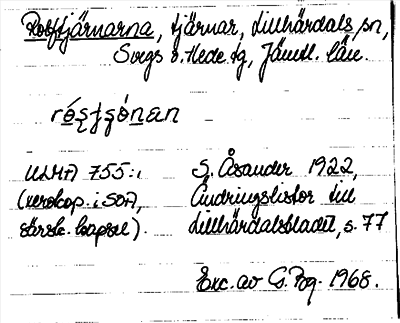 Rolftjärnarna, tjärnar, Lillhärdals sn,
Svegs o. Hede tg, Jämtl. län.
ULMA 755:1 S. Åsander 1922,
(xerokop. i SOA, Ändringslistor till
särsk. kapsel). Lillhärdalsbladet, s. 77
Exc. av G. Bog. 1968.